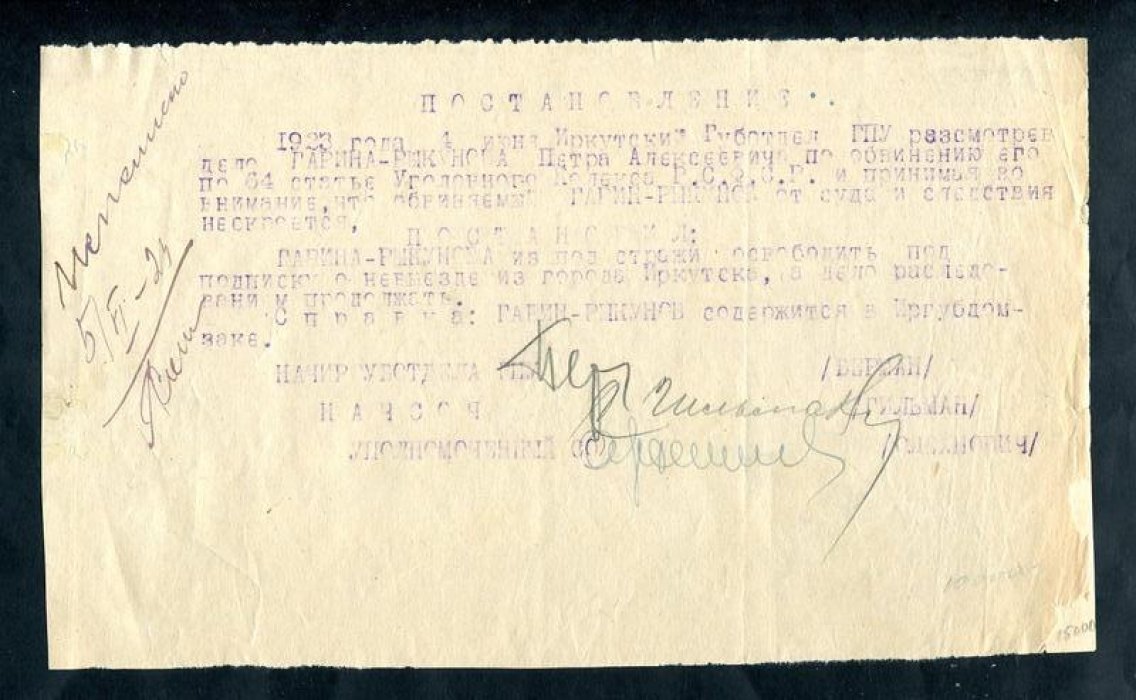 Исполнено
5/VI-23
ПОСТАНОВЛЕНИЕ
1923 года 4 июня Иркутский Губотдел ГПУ разсмотрев
дело ГАРИНА-РЫКУНОВА Петра Алексеевича по обвинению его
по 64 статье Уголовного Кодекса Р.С.Ф.С.Р. и принимая во
внимание, что обвиняемый ГАРИН-РЫКУНОВ от суда и следствия
нескроется,
ПОСТАНОВИЛ:
ГАРИНА-РЫКУНОВА из под стражи освободить под
подписку о невыезде из города Иркутска, а дело
продолжать.
Справка: ГАРИН-РЫКУНОВ содержится в Иргубдом-
заке.
НАЧИРГУБОТДЕЛА ГПУ /БЕРМАН/
НАЧСОЧ Гильман /ГИЛЬМАН/
УПОЛНОМОЧЕННЫЙ
15000